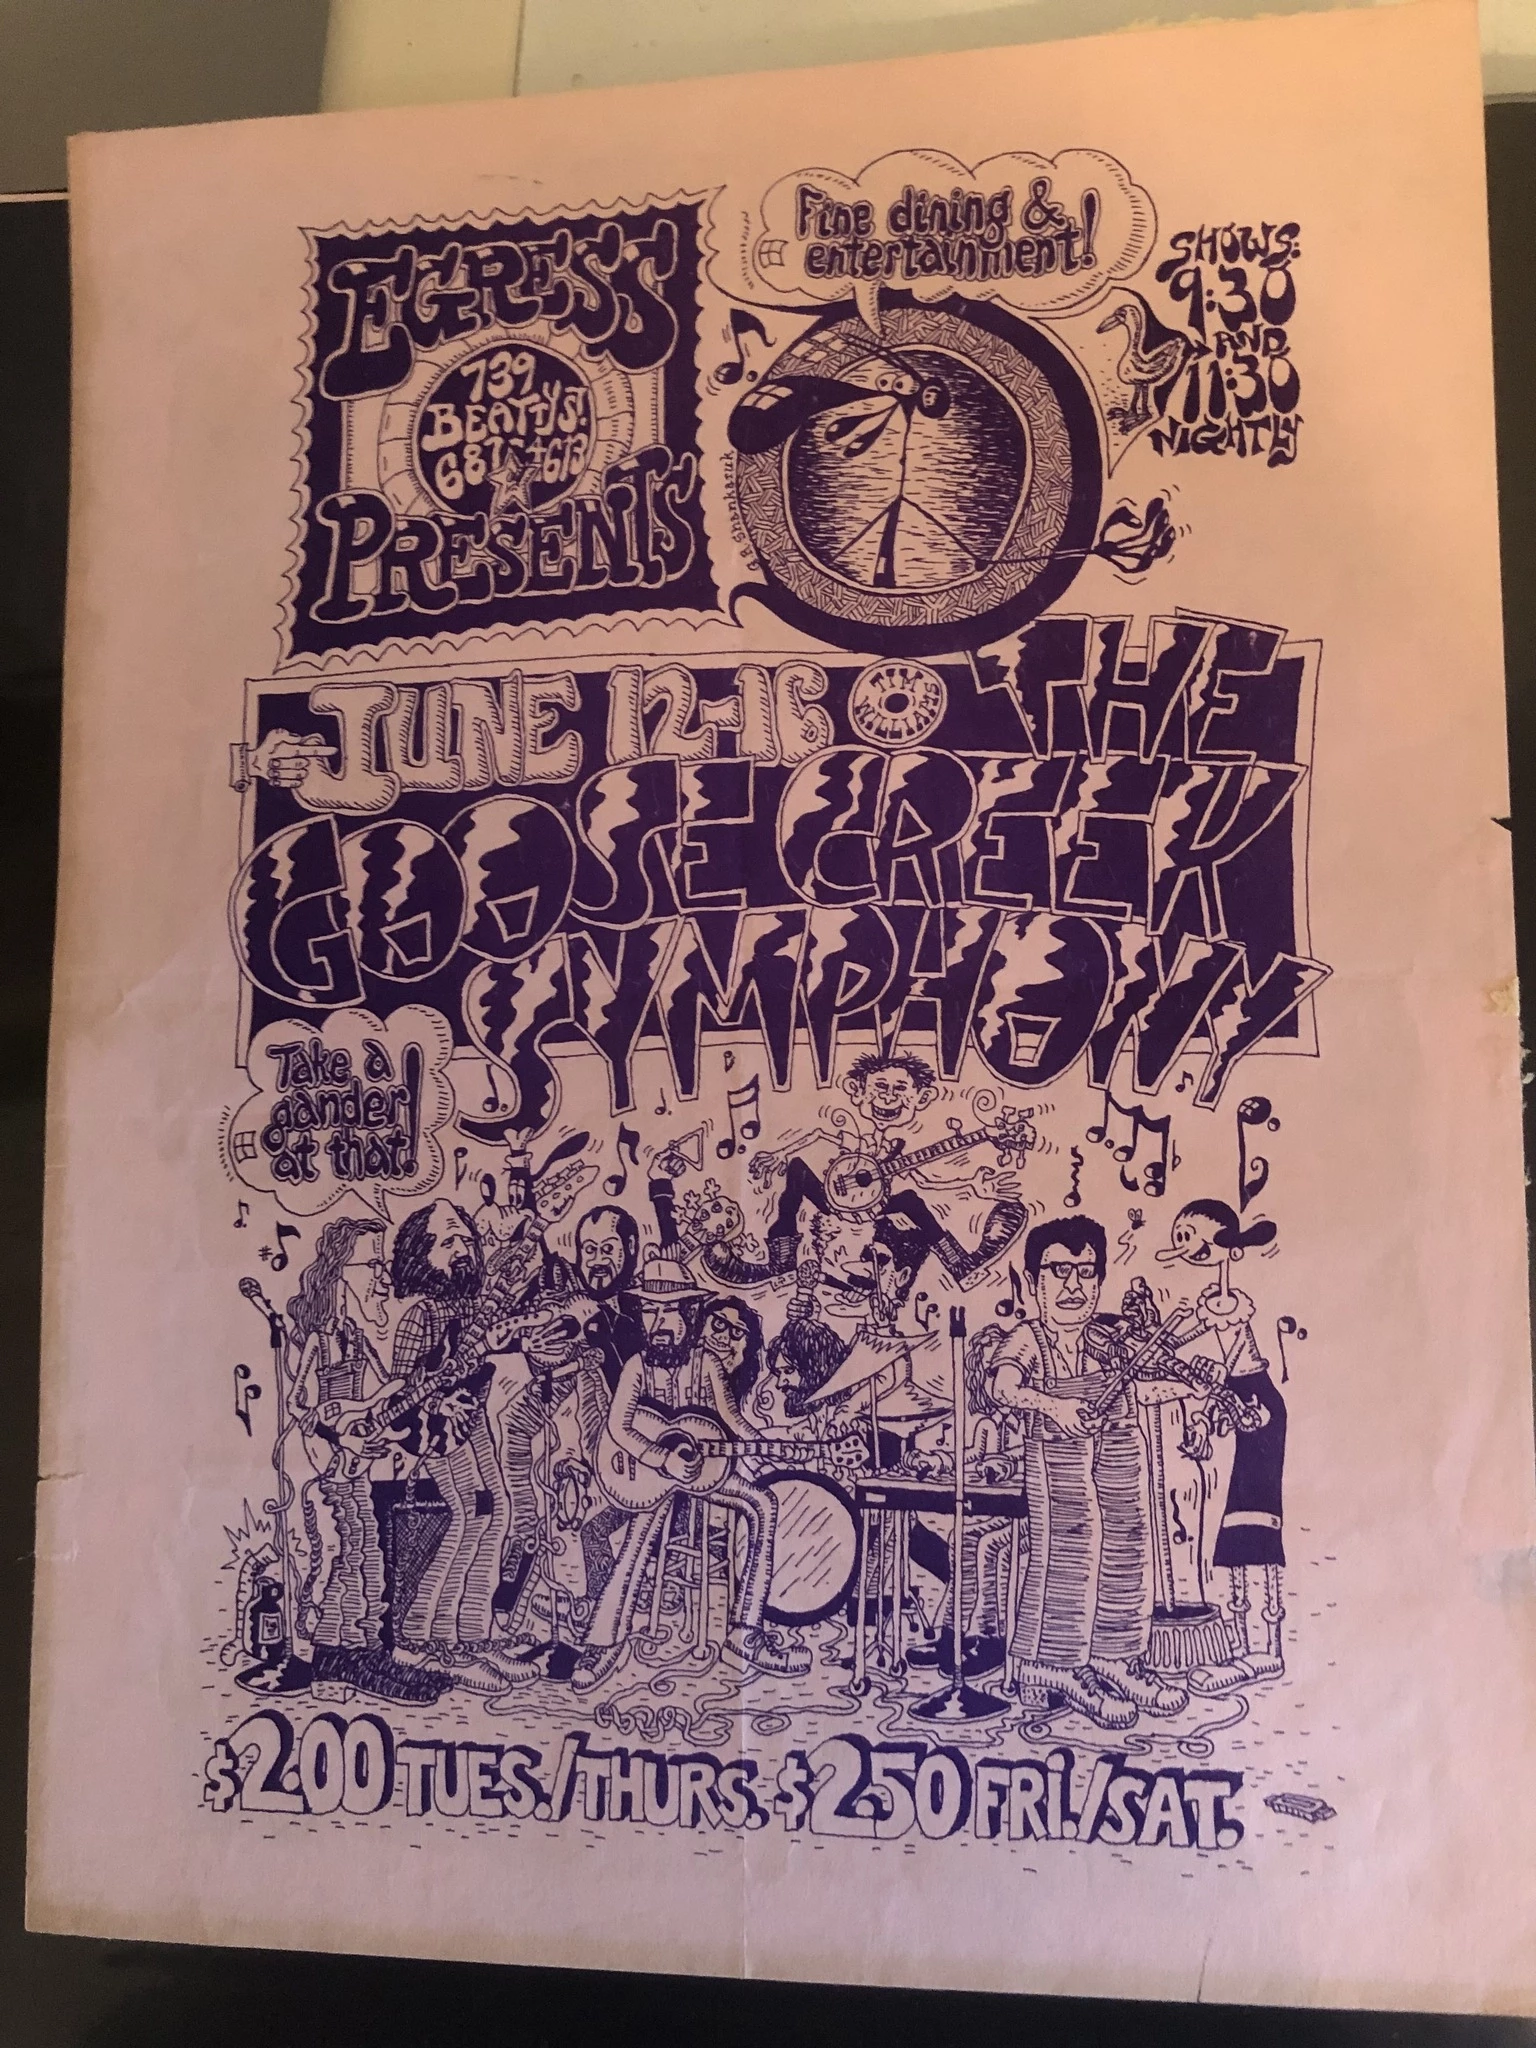 EGRESS
739
BEATTY ST.
687-4613
PRESENTS
Fine dining &
entertainment!
SHOWS:
9:30
AND
11:30
NIGHTLY
JUNE 12-16
TIM
WILLIAMS
THE
GOOSE CREEK
SYMPHONY
Take a
gander
at that!
$2.00 TUES./THURS. $2.50 FRI./SAT.